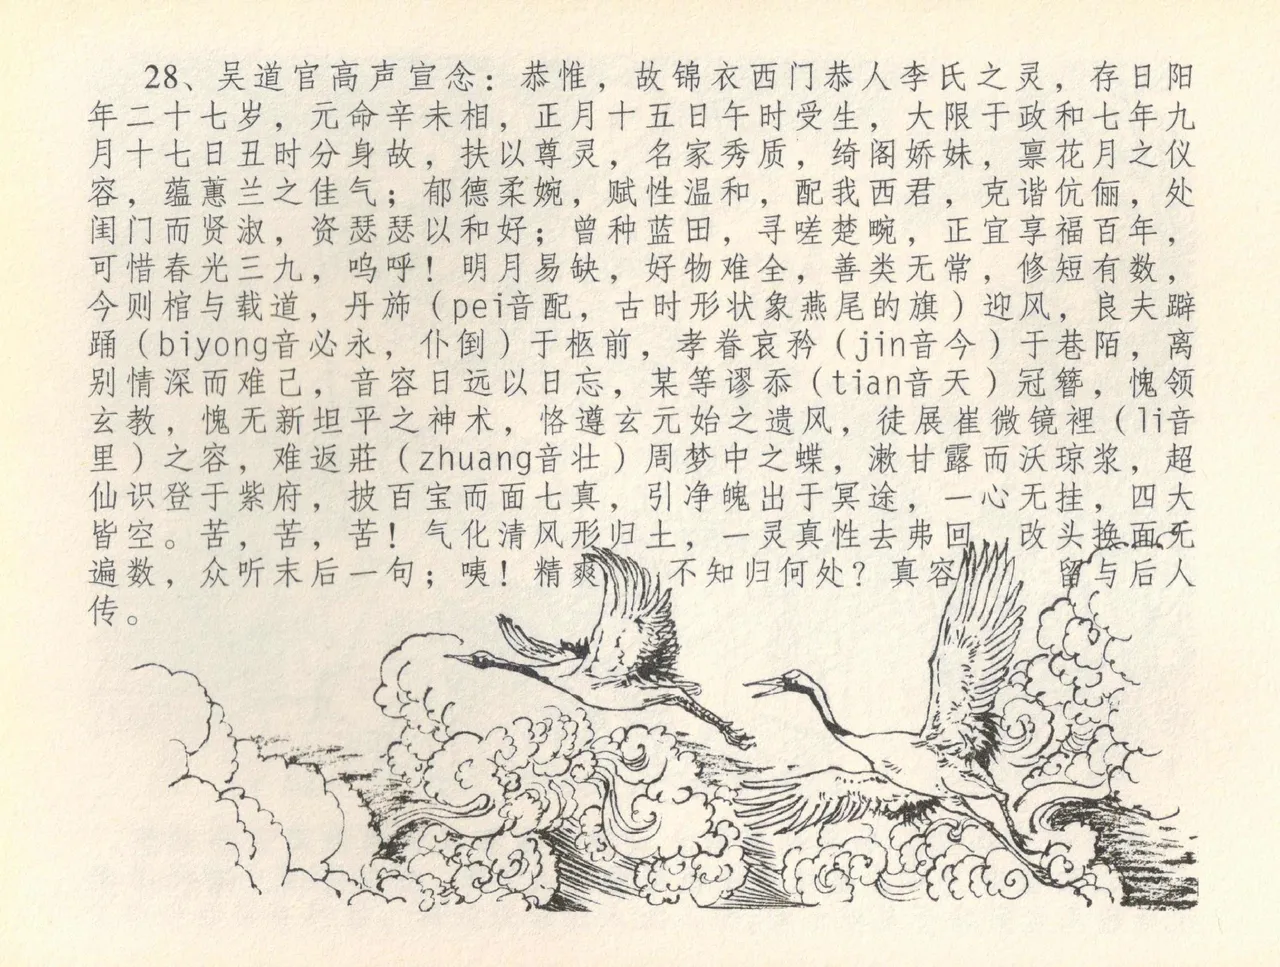 28、吴道官高声宣念：恭惟，故锦衣西门恭人李氏之灵，存日阳
年二十七岁，元命辛未相，正月十五日午时受生，大限于政和七年九
月十七日丑时分身故，扶以尊灵，名家秀质，绮阁娇妹，禀花月之仪
容，蕴蕙兰之佳气；郁德柔婉，赋性温和，配我西君，克谐伉俪，处
闺门而贤淑，资瑟瑟以和好；曾种蓝田，寻嗟楚畹，正宜享福百年，
可惜春光三九，呜呼！明月易缺，好物难全，善类无常，修短有数，
今则棺与载道，丹旆（pei音配，古时形状象燕尾的旗）迎风，良夫躃
踊（biyong音必永，仆倒）于柩前，孝眷哀矜（jin音今）于巷陌，离
别情深而难己，音容日远以日忘，某等谬忝（tian音天）冠簪，愧领
玄教，愧无新坦平之神术，恪遵玄元始之遗风，徒展崔微镜裡（li音
里）之容，难返莊（zhuang音壮）周梦中之蝶，漱甘露而沃琼浆，超
仙识登于紫府，披百宝而面七真，引净魄出于冥途，一心无挂，四大
皆空。苦，苦，苦！气化清风形归土，一灵真性去弗回，改头换面无
遍数，众听末后一句；咦！精爽 不知归何处？真容 留与后人
传。